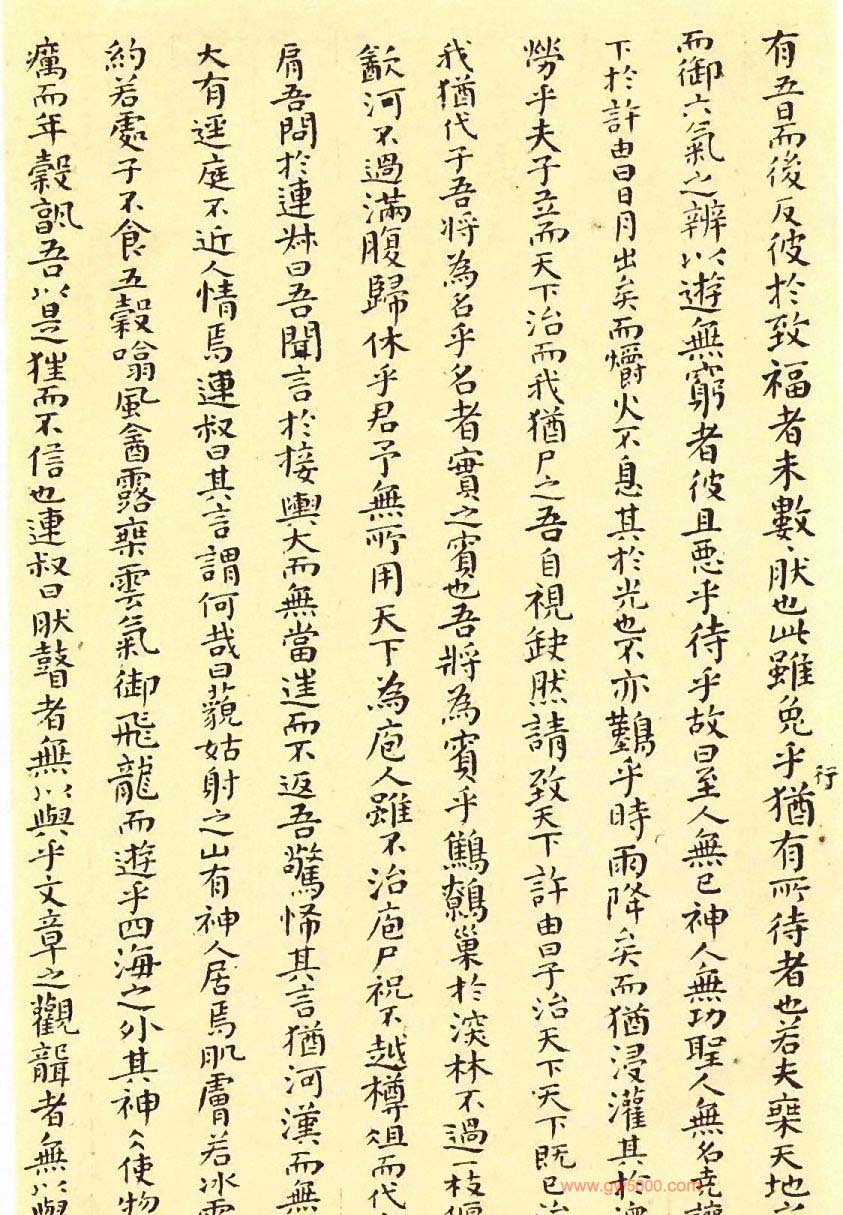 有五日而後反彼於致福者未數〻肰也此雖免乎猶有所待者也若夫乗天地之
行
而御六氣之辨以遊無窮者彼且惡乎待乎故曰至人無己神人無功聖人無名堯讓
下於許由曰日月出矣而爝火不息其於光也不亦難乎時雨降矣而猶浸灌其於澤
勞乎夫子立而天下治而我猶尸之吾自視缺然請致天下許由曰子治天下天下既已治
我猶代子吾將為名乎名者實之賓也吾將為賓乎鷦鷯巢於深林不過一枝偃
歠河不過滿腹歸休乎君予無所用天下為庖人雖不治庖尸祝不越樽俎而代
肩吾問於連叔曰吾聞言於接輿大而無當逞而不返吾驚怖其言猶河漢而無
大有逕庭不近人情焉連叔曰其言謂何哉曰藐姑射之山有神人居焉肌膚若冰雪
約若處子不食五穀噏風飲露乗雲氣御飛龍而遊乎四海之外其神〻使物
癘而年穀孰吾以是狂而不信也連叔曰肰瞽者無以與乎文章之觀聾者無以與
www.gw5000.com